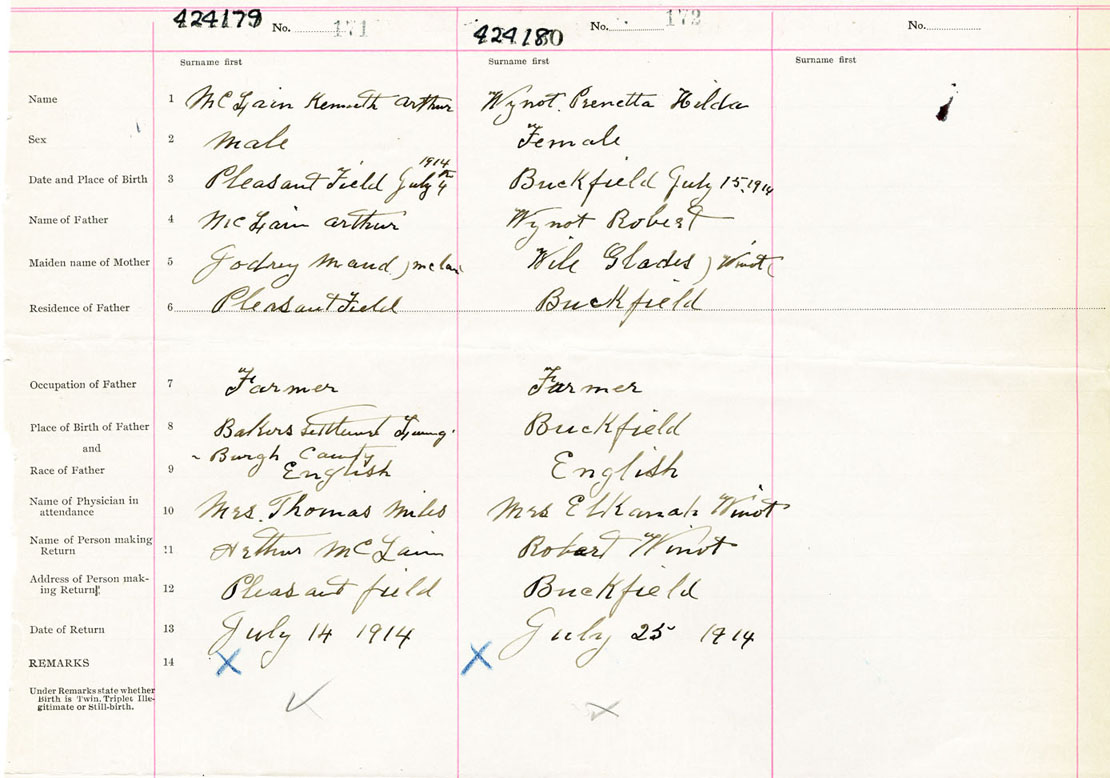 424179 No. 171 424180 No. 172 No.
Surname first Surname first Surname first
Name 1 McLain Kenneth Arthur Wynot Prenetta Hilda
Sex 2 male Female
1914
Date and Place of Birth 3 Pleasant Field July 4th Buckfield July 15, 1914
Name of Father 4 McLain Arthur Wynot Robert
Maiden name of Mother 5 Godrey Maud ) mclain Wile Glades ) Winot
Residence of Father 6 Pleasant Field Buckfield
Occupation of Father 7 Farmer Farmer
Place of Birth of Father 8 Bakers Settlement Lunng Buckfield
and - Burgh County
Race of Father 9 English English
Name of Physician in
attendance 10 Mrs. Thomas Miles Mrs Elkanah Winot
Name of Person making
Return 11 Arthur McLain Robart Winot
Address of Person mak-
ing Return 12 Pleasant field Buckfield
Date of Return 13 July 14 1914 July 25 1914
REMARKS 14 X X
Under Remarks state whether
Birth is Twin, Triplet, Ille-
gitimate or Still-birth.